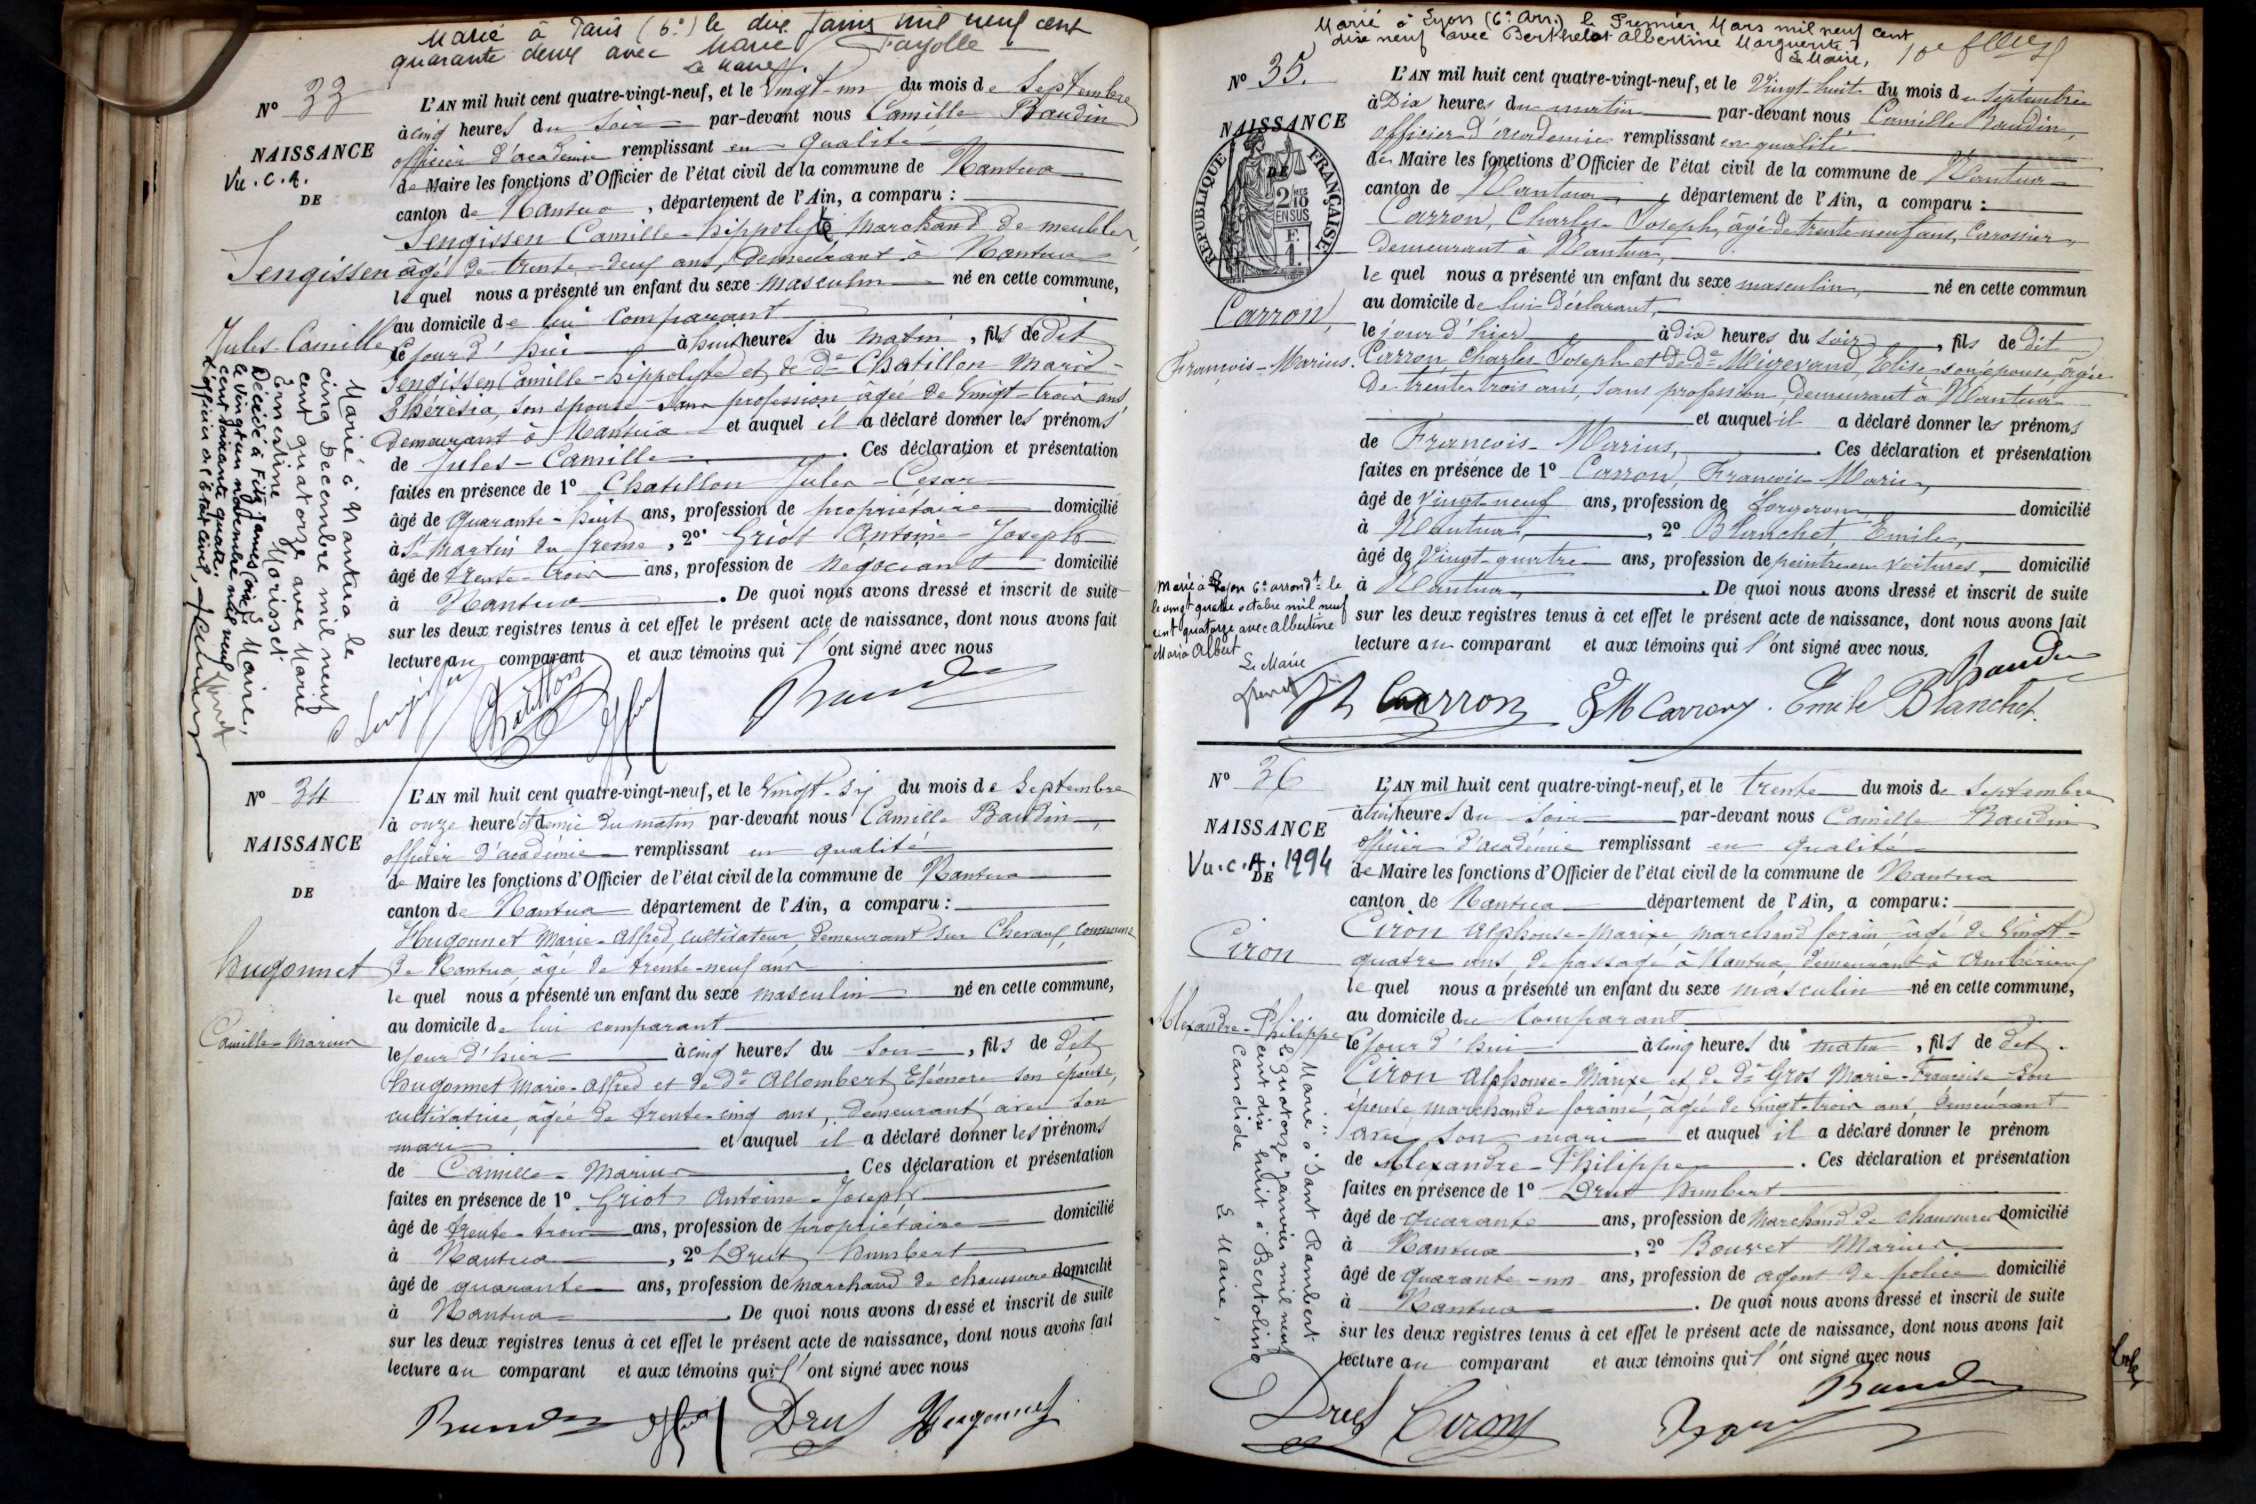 Marié à Paris (6e) le dix Juin mil neuf cent
quarante deux avec Marie Fayolle
Le Maire
No 33
NAISSANCE
Vu. C. A.
DE
Sengissen
Jules-Camille
Marié à Nantua le
cinq Décembre mil neuf
cent quatorze avec Marie
Ernestine Morisset
Le Maire,
Décédé à Fitz James (Oise)
le vingt un novembre mil neuf
cent soixante quatre.
L'officier de l'état civil,
L'AN mil huit cent quatre-vingt-neuf, et le Vingt-un du mois de Septembre
à cinq heures du soir par-devant nous Camille Baudin
officier d'académie remplissant en qualité
de Maire les fonctions d'Officier de l'état civil de la commune de Nantua
canton de Nantua, département de l'Ain, a comparu :
Sengissen Camille-hippolyte Marchand de meubles,
âgé de trente-deux ans, demeurant à Nantua
lequel nous a présenté un enfant du sexe masculin né en cette commune,
au domicile de lui comparant
le jour d'hui à huit heures du matin, fils de dit
Sengissen Camille-hippolyte et de De Chatillon Marie-
Thérésia, son épouse sans profession âgée de Vingt-trois ans,
demeurant à Nantua et auquel il a déclaré donner les prénoms
de Jules-Camille. Ces déclaration et présentation
faites en présence de 1o Chatillon Jules-César
âgé de Quarante-huit ans, profession de propriétaire domicilié
à St Martin du fresne, 2o Griot Antoine-Joseph
âgé de trente-trois ans, profession de Négociant domicilié
à Nantua. De quoi nous avons dressé et inscrit de suite
sur les deux registres tenus à cet effet le présent acte de naissance, dont nous avons fait
lecture au comparant et aux témoins qui l'ont signé avec nous
Chatillon
Baudin
No 34
NAISSANCE
DE
hugonnet
Camille-Marius
L'AN mil huit cent quatre-vingt-neuf, et le Vingt-six du mois de Septembre
à onze heures et demie du matin par-devant nous Camille Baudin,
officier d'académie remplissant en qualité
de Maire les fonctions d'Officier de l'état civil de la commune de Nantua
canton de Nantua département de l'Ain, a comparu :
Hugonnet Marie-Alfred, cultivateur, demeurant sur Chevaux, commune
de Nantua, âgé de trente-neuf ans
lequel nous a présenté un enfant du sexe masculin né en cette commune,
au domicile de lui comparant
le jour d'hier à cinq heures du soir, fils de dit
hugonnet Marie-Alfred et de De Allombert Eléonore son épouse,
cultivatrice, âgée de trente-cinq ans, demeurant avec son
mari et auquel il a déclaré donner les prénoms
de Camille-Marius. Ces déclaration et présentation
faites en présence de 1o Griot Antoine-Joseph
âgé de trente-trois ans, profession de propriétaire domicilié
à Nantua, 2o Drut humbert
âgé de quarante ans, profession de marchand de chaussures domicilié
à Nantua. De quoi nous avons dressé et inscrit de suite
sur les deux registres tenus à cet effet le présent acte de naissance, dont nous avons fait
lecture au comparant et aux témoins qui l'ont signé avec nous
Baudin Drut Hugonnet
Marié à Lyon (6e Arr.) le Premier Mars mil neuf cent
dix neuf avec Berthelot Albertine Marguerite.
Le Maire,
No 35.
NAISSANCE
DE
RÉPUBLIQUE FRANÇAISE
2 MES
10
EN SUS
F.
1.
Carron,
François-Marius.
Marié à Lyon 6e arrondt le
le vingt quatre octobre mil neuf
cent quatorze avec Albertine
Maria Albert
Le Maire
L'AN mil huit cent quatre-vingt-neuf, et le Vingt-huit du mois de Septembre
à Dix heures du matin par-devant nous Camille Baudin,
officier d'académie remplissant en qualité
de Maire les fonctions d'Officier de l'état civil de la commune de Nantua
canton de Nantua, département de l'Ain, a comparu :
Carron, Charles-Joseph, âgé de trente neuf ans, Carrossier,
demeurant à Nantua,
lequel nous a présenté un enfant du sexe masculin, né en cette commun
au domicile de lui Déclarant,
le jour d'hier à dix heures du soir, fils de dit
Carron Charles Joseph et de De Migevand, Elise son épouse, âgée
de trente trois ans, sans profession, demeurant à Nantua
et auquel il a déclaré donner les prénoms
de François-Marius, Ces déclaration et présentation
faites en présence de 1o Carron, François-Marie,
âgé de Vingt-neuf ans, profession de forgeron domicilié
à Nantua, 2o Blanchet, Emile,
âgé de Vingt-quatre ans, profession de peintre en voitures, domicilié
à Nantua. De quoi nous avons dressé et inscrit de suite
sur les deux registres tenus à cet effet le présent acte de naissance, dont nous avons fait
lecture au comparant et aux témoins qui l'ont signé avec nous.
Baudin
Carron FM Carron. Emile Blanchet.
No 36
NAISSANCE
Vu. C. A. 1994
DE
Ciron
Alexandre-Philippe
Marié à Saint Rambert
le quatorze janvier mil neuf
cent dix huit à Bertolino
Candide
Le Maire,
L'AN mil huit cent quatre-vingt-neuf, et le trente du mois de Septembre
à huit heures du soir par-devant nous Camille Baudin
officier d'académie remplissant en qualité
de Maire les fonctions d'Officier de l'état civil de la commune de Nantua
canton de Nantua département de l'Ain, a comparu :
Ciron Alphonse-Marixe, marchand forain, âgé de Vingt-
quatre ans, de passage à Nantua, demeurant à Ambérieux
lequel nous a présenté un enfant du sexe masculin né en cette commune,
au domicile du Comparant
le jour d'hui à cinq heures du matin, fils de dit.
Ciron Alphonse-Marixe et de De Gros Marie-Françoise son
épouse, marchande foraine, âgée de Vingt-trois ans, demeurant
avec son mari et auquel il a déclaré donner le prénom
de Alexandre-Philippe. Ces déclaration et présentation
faites en présence de 1o Drut humbert
âgé de quarante ans, profession de Marchand de chaussures domicilié
à Nantua, 2o Bouvet Marius
âgé de quarante-un ans, profession de agent de police domicilié
à Nantua. De quoi nous avons dressé et inscrit de suite
sur les deux registres tenus à cet effet le présent acte de naissance, dont nous avons fait
lecture au comparant et aux témoins qui l'ont signé avec nous
Baudin
Drut Ciron